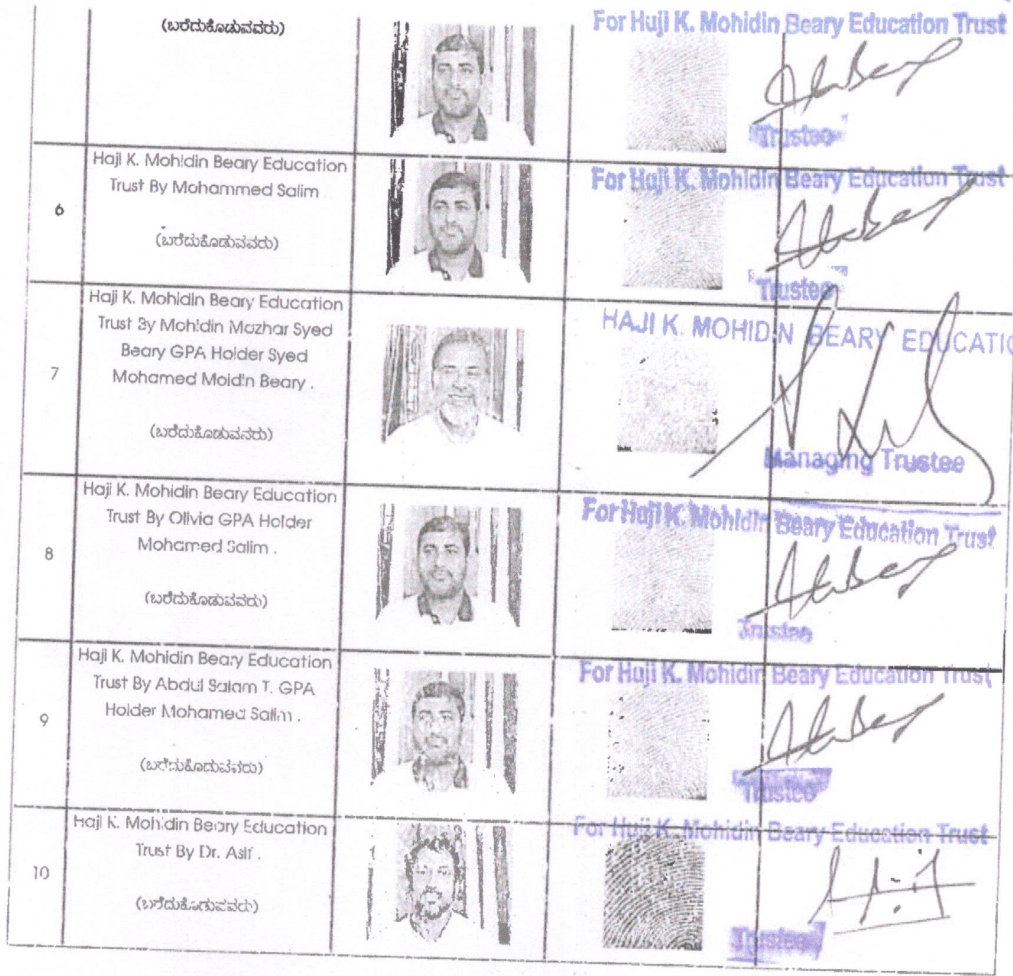 (ಬರೆದುಕೊಡುವವರು)
For Huji K. Mohidin Beary Education Trust
Trustee
6
Haji K. Mohidin Beary Education
Trust By Mohammed Salim
(ಬರೆದುಕೊಡುವವರು)
For Huji K. Mohidin Beary Education Trust
Trustee
7
Haji K. Mohidin Beary Education
Trust By Mohidin Mazhar Syed
Beary GPA Holder Syed
Mohamed Moidin Beary .
(ಬರೆದುಕೊಡುವವರು)
HAJI K. MOHIDIN BEARY EDUCATIO
Managing Trustee
8
Haji K. Mohidin Beary Education
Trust By Olivia GPA Holder
Mohamed Salim .
(ಬರೆದುಕೊಡುವವರು)
For Huji K. Mohidin Beary Education Trust
Trustee
9
Haji K. Mohidin Beary Education
Trust By Abdul Salam T. GPA
Holder Mohamed Salim .
(ಬರೆದುಕೊಡುವವರು)
For Huji K. Mohidin Beary Education Trust
Trustee
10
Haji K. Mohidin Beary Education
Trust By Dr. Asif .
(ಬರೆದುಕೊಡುವವರು)
For Huji K. Mohidin Beary Education Trust
Trustee